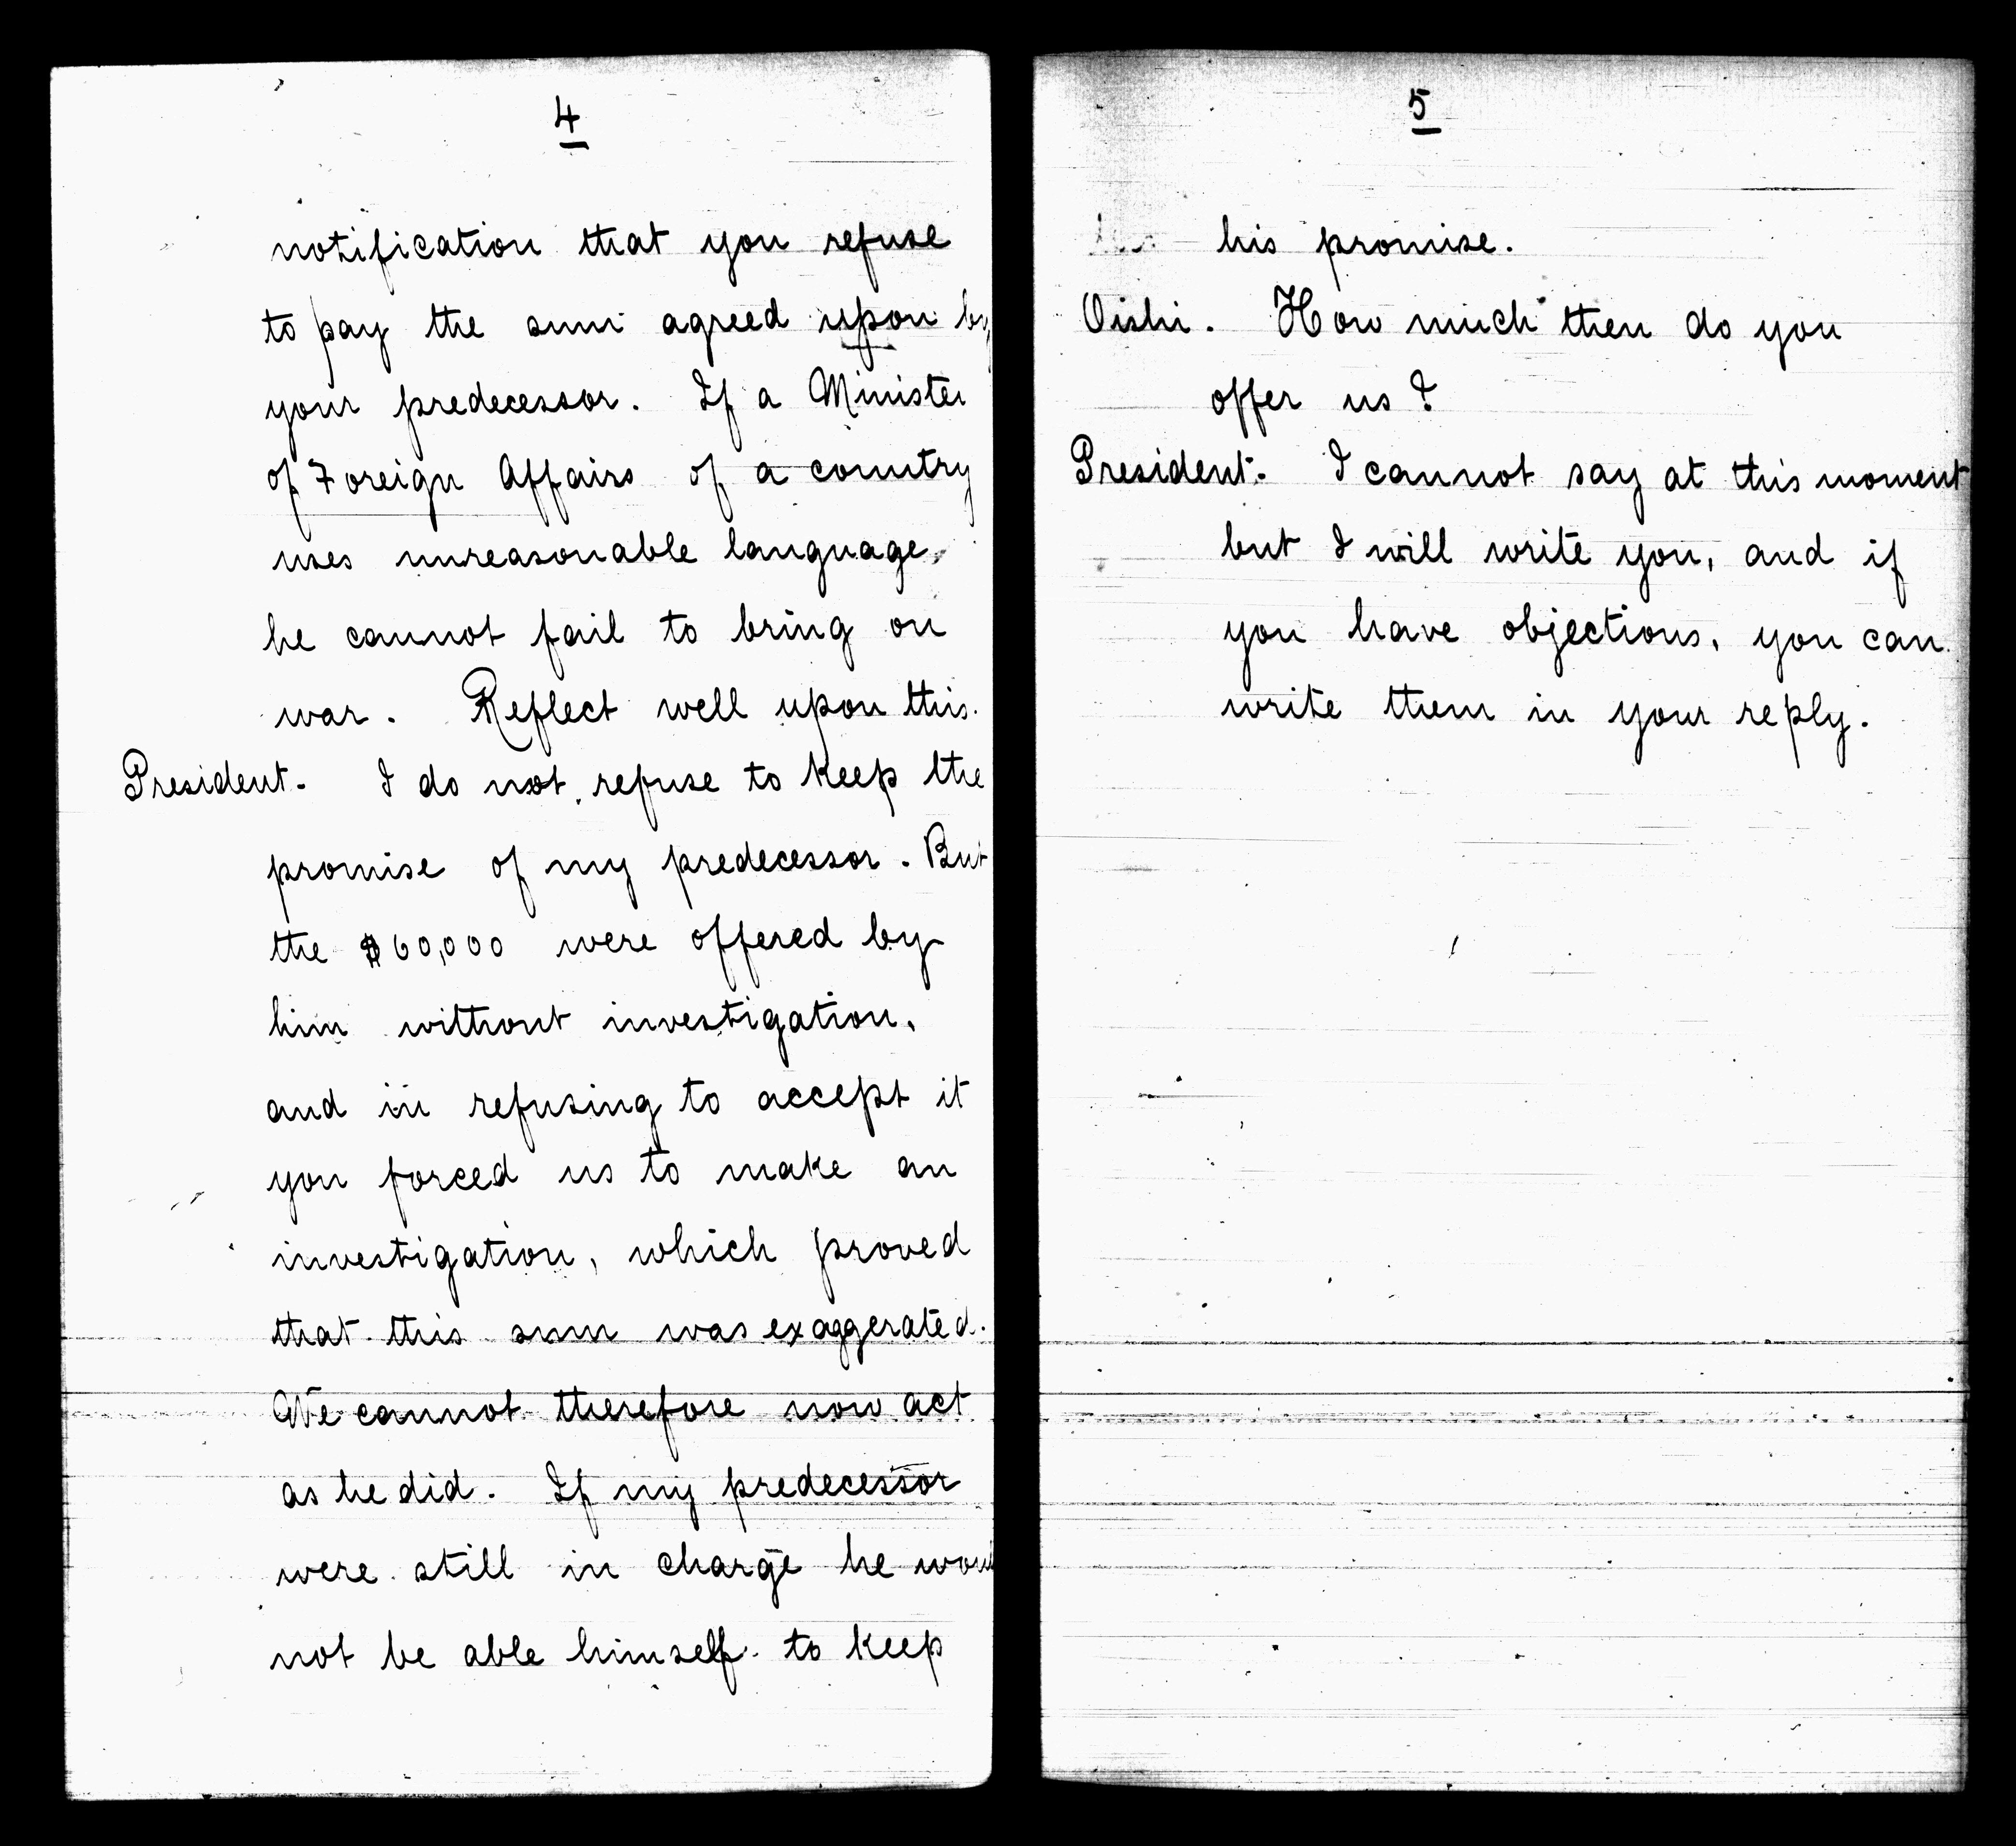 4
notification that you refuse
to pay the sum agreed upon by
your predecessor. If a Minister
of Foreign Affairs of a country
uses unreasonable language,
he cannot fail to bring on
war. Reflect well upon this.
President. I do not refuse to keep the
promise of my predecessor. But
the $60,000 were offered by
him without investigation,
and in refusing to accept it
you forced us to make an
investigation, which proved
that this sum was exaggerated.
We cannot therefore now act
as he did. If my predecessor
were still in charge he would
not be able himself to keep
5
his promise.
Oishi. How much then do you
offer us?
President. I cannot say at this moment
but I will write you, and if
you have objections, you can
write them in your reply.